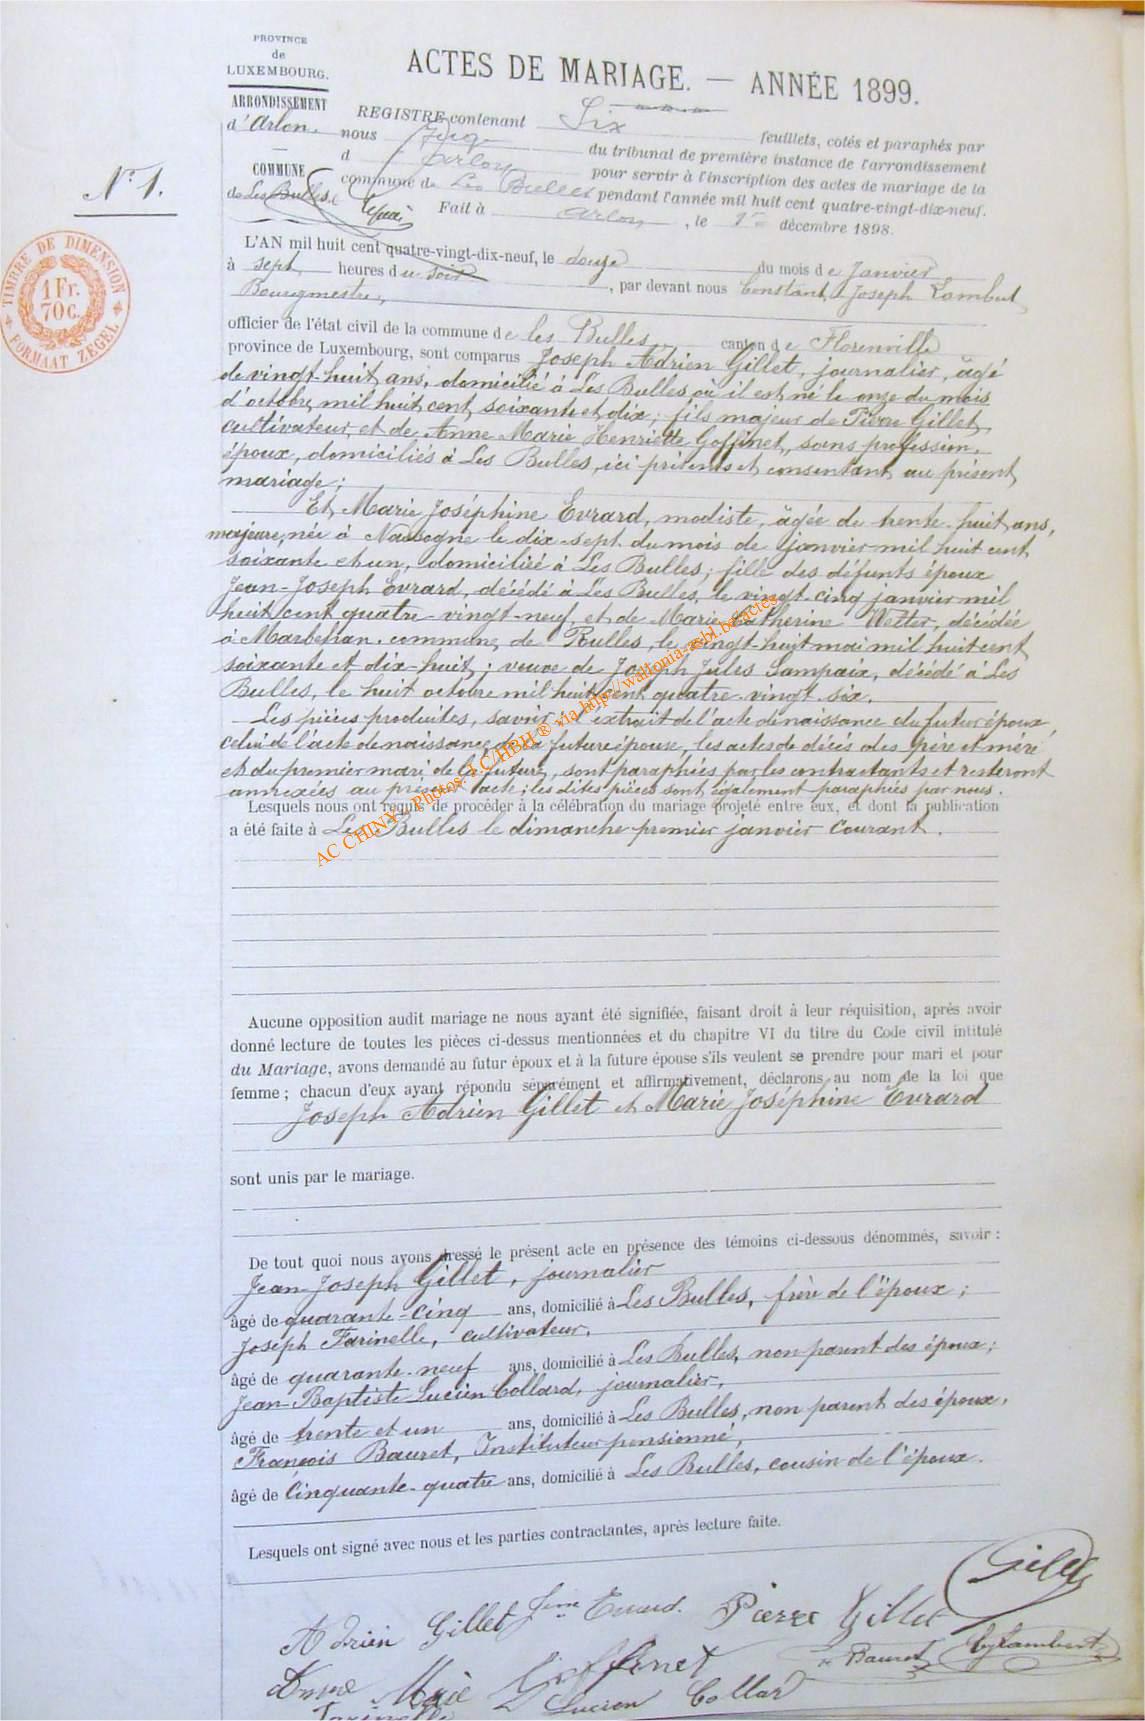 PROVINCE
de
LUXEMBOURG.
ARRONDISSEMENT
d'Arlon.
COMMUNE
de Les Bulles.
N° 1.
TIMBRE DE DIMENSION
1 Fr.
70 c.
FORMAAT ZEGEL
ACTES DE MARIAGE. — ANNÉE 1899.
REGISTRE contenant Six feuillets, cotés et paraphés par
nous Juge du tribunal de première instance de l'arrondissement
d'Arlon pour servir à l'inscription des actes de mariage de la
commune de Les Bulles pendant l'année mil huit cent quatre-vingt-dix-neuf.
Fait à Arlon, le 1er décembre 1898.
L'AN mil huit cent quatre-vingt-dix-neuf, le douze du mois de Janvier
à sept heures du soir, par devant nous Constant, Joseph Lambert
Bourgmestre,
officier de l'état civil de la commune de les Bulles canton de Florenville
province de Luxembourg, sont comparus Joseph Adrien Gillet, journalier, âgé
de vingt-huit ans, domicilié à Les Bulles où il est né le onze du mois
d'octobre mil huit cent soixante et dix; fils majeur de Pierre Gillet,
cultivateur, et de Anne Marie Henriette Goffinet, sans profession,
époux, domiciliés à Les Bulles, ici présents et consentant au présent
mariage;
Et Marie Joséphine Evrard, modiste, âgée de trente-huit ans,
majeure, née à Nassogne le dix-sept du mois de janvier mil huit cent
soixante et un, domiciliée à Les Bulles; fille des défunts époux
Jean-Joseph Evrard, décédé à Les Bulles, le vingt-cinq janvier mil
huit cent quatre-vingt-neuf, et de Marie Catherine Wetter, décédée
à Marbehan, commune de Rulles, le vingt-huit mai mil huit cent
soixante et dix-huit; veuve de Joseph Jules Lampaix, décédé à Les
Bulles, le huit octobre mil huit cent quatre-vingt-six.
Les pièces produites, savoir: l'extrait de l'acte de naissance du futur époux,
celui de l'acte de naissance de la future épouse, les actes de décès des père et mère
et du premier mari de la future, sont paraphiés par les contractants et resteront
annexées au présent acte; les dites pièces sont également paraphiés par nous.
Lesquels nous ont requis de procéder à la célébration du mariage projeté entre eux, et dont la publication
a été faite à Les Bulles le dimanche premier janvier courant.
AC CHINY - Photos: LC/HBH ® via http://wallonia-asbl.be/actes
Aucune opposition audit mariage ne nous ayant été signifiée, faisant droit à leur réquisition, après avoir
donné lecture de toutes les pièces ci-dessus mentionnées et du chapitre VI du titre du Code civil intitulé
du Mariage, avons demandé au futur époux et à la future épouse s'ils veulent se prendre pour mari et pour
femme; chacun d'eux ayant répondu séparément et affirmativement, déclarons au nom de la loi que
Joseph Adrien Gillet et Marie Joséphine Evrard
sont unis par le mariage.
De tout quoi nous avons dressé le présent acte en présence des témoins ci-dessous dénommés, savoir:
Jean-Joseph Gillet, journalier
âgé de quarante-cinq ans, domicilié à Les Bulles, frère de l'époux;
Joseph Farinelle, cultivateur,
âgé de quarante-neuf ans, domicilié à Les Bulles, non parent des époux;
Jean-Baptiste Lucien Collard, journalier,
âgé de trente et un ans, domicilié à Les Bulles, non parent des époux,
François Bauret, Instituteur pensionné,
âgé de Cinquante-quatre ans, domicilié à Les Bulles, cousin de l'époux.
Lesquels ont signé avec nous et les parties contractantes, après lecture faite.
Gillet
Adrien Gillet Jine Evrard. Pierre Gillet
Anne Marie Goffinet Bauret CJ Lambert
Farinelle Lucien Collard